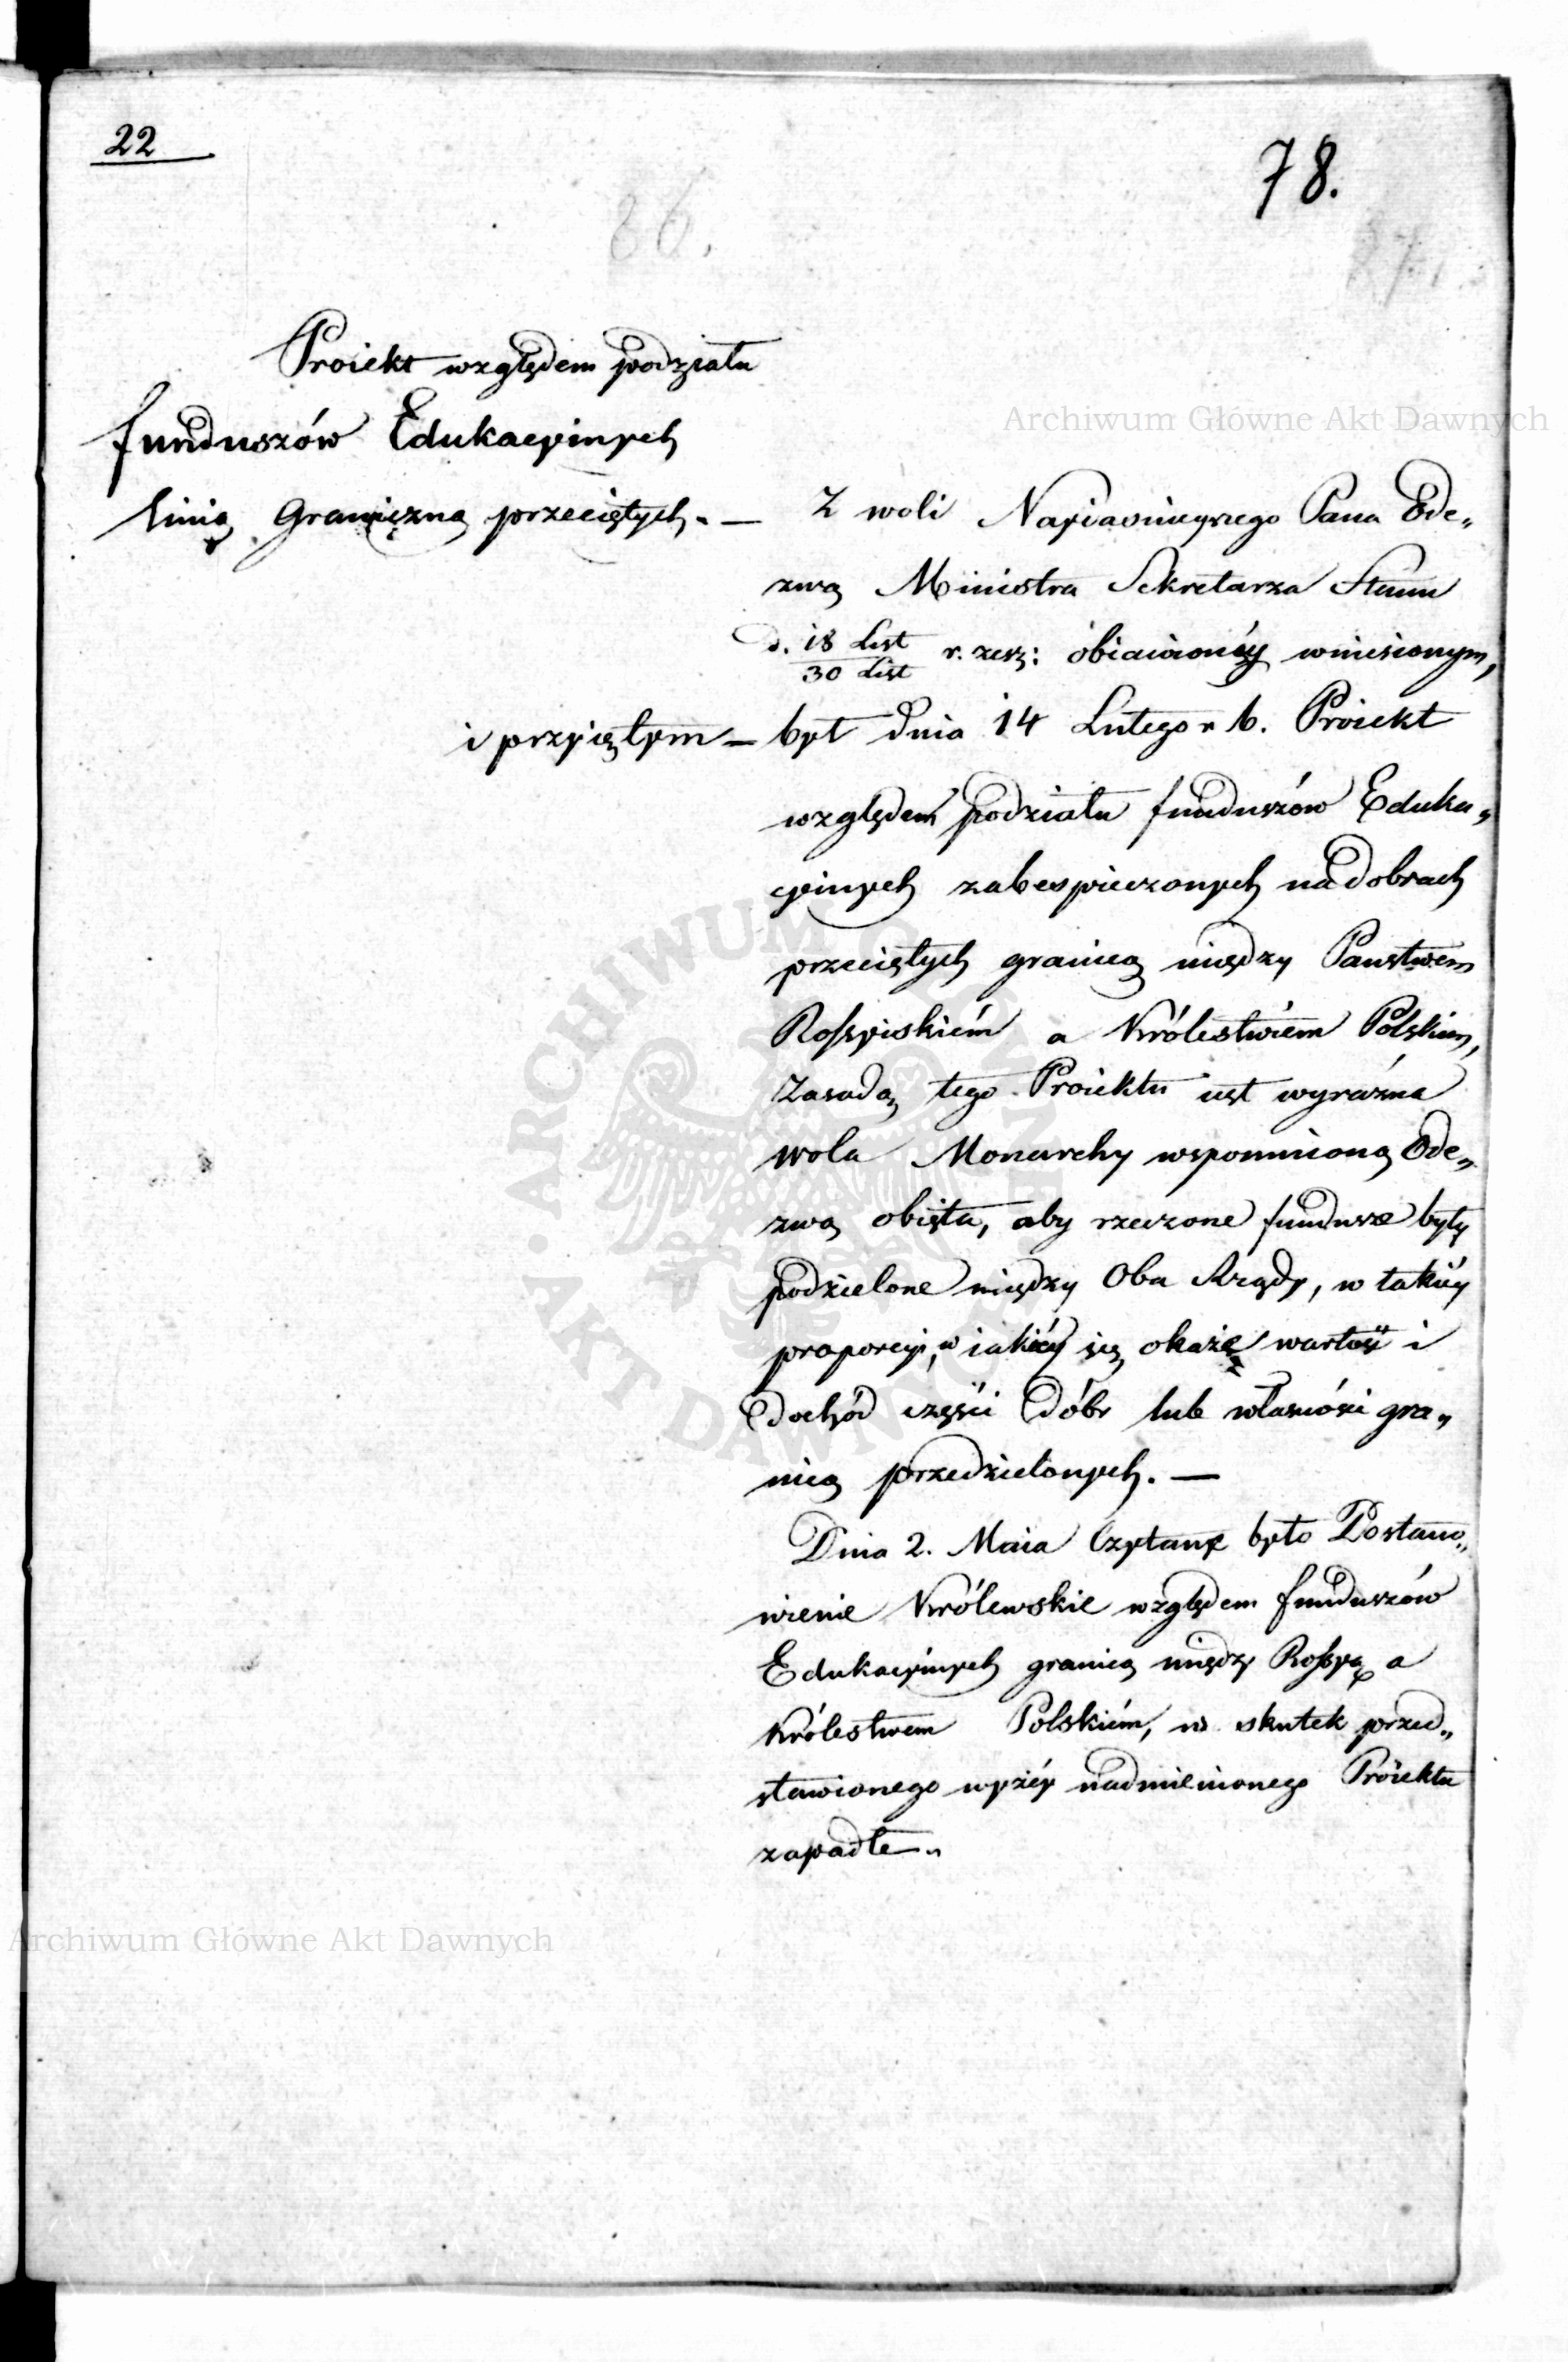 22
78.
86.
87.
Proiekt względem podziału
funduszów Edukacyinych
linią Graniczną przeciętych. —
Z woli Nayiaśnieyszego Pana Ode„
zwą Ministra Sekretarza Stanu
d. 18 List / 30 List r. zesz: obiawionéy wniesionym,
i przyiętym — był dnia 14 Lutego r. b. Proiekt
względem podziału funduszów Eduka„
cyinych zabespieczonych na dobrach
przeciętych granicą między Państwem
Rossyiskiém a Królestwem Polskim,
Zasadą tego Proiektu iest wyraźna
wola Monarchy wspomnioną Ode„
zwą obięta, aby rzeczone fundusze były
podzielone między Oba Rządy, w takiéy
proporcyi, w iakiéy się okaże wartość i
dochód części dóbr lub własności gra„
nicą przedzielonych. —
Dnia 2. Maia Czytane było Postano„
wienie Królewskie względem funduszów
Edukacyinych granicą między Rossyą a
Królestwem Polskiém, w skutek przed„
stawionego wyżéy nadmienionego Proiektu
zapadłe.
Archiwum Główne Akt Dawnych
Archiwum Główne Akt Dawnych
ARCHIWUM GŁÓWNE • AKT DAWNYCH